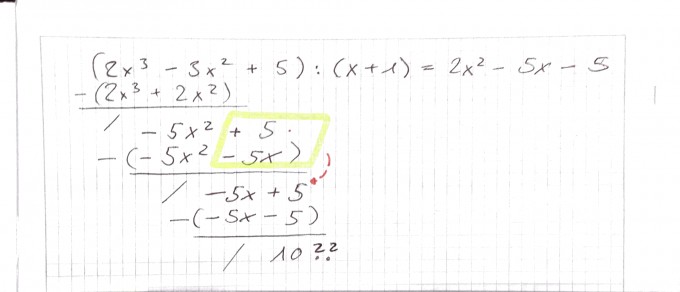 (2x³ - 3x² + 5) : (x+1) = 2x² - 5x - 5
-(2x³ + 2x²)
/ - 5x² + 5
-(-5x² - 5x)
/ -5x + 5
-(-5x - 5)
/ 10 ??